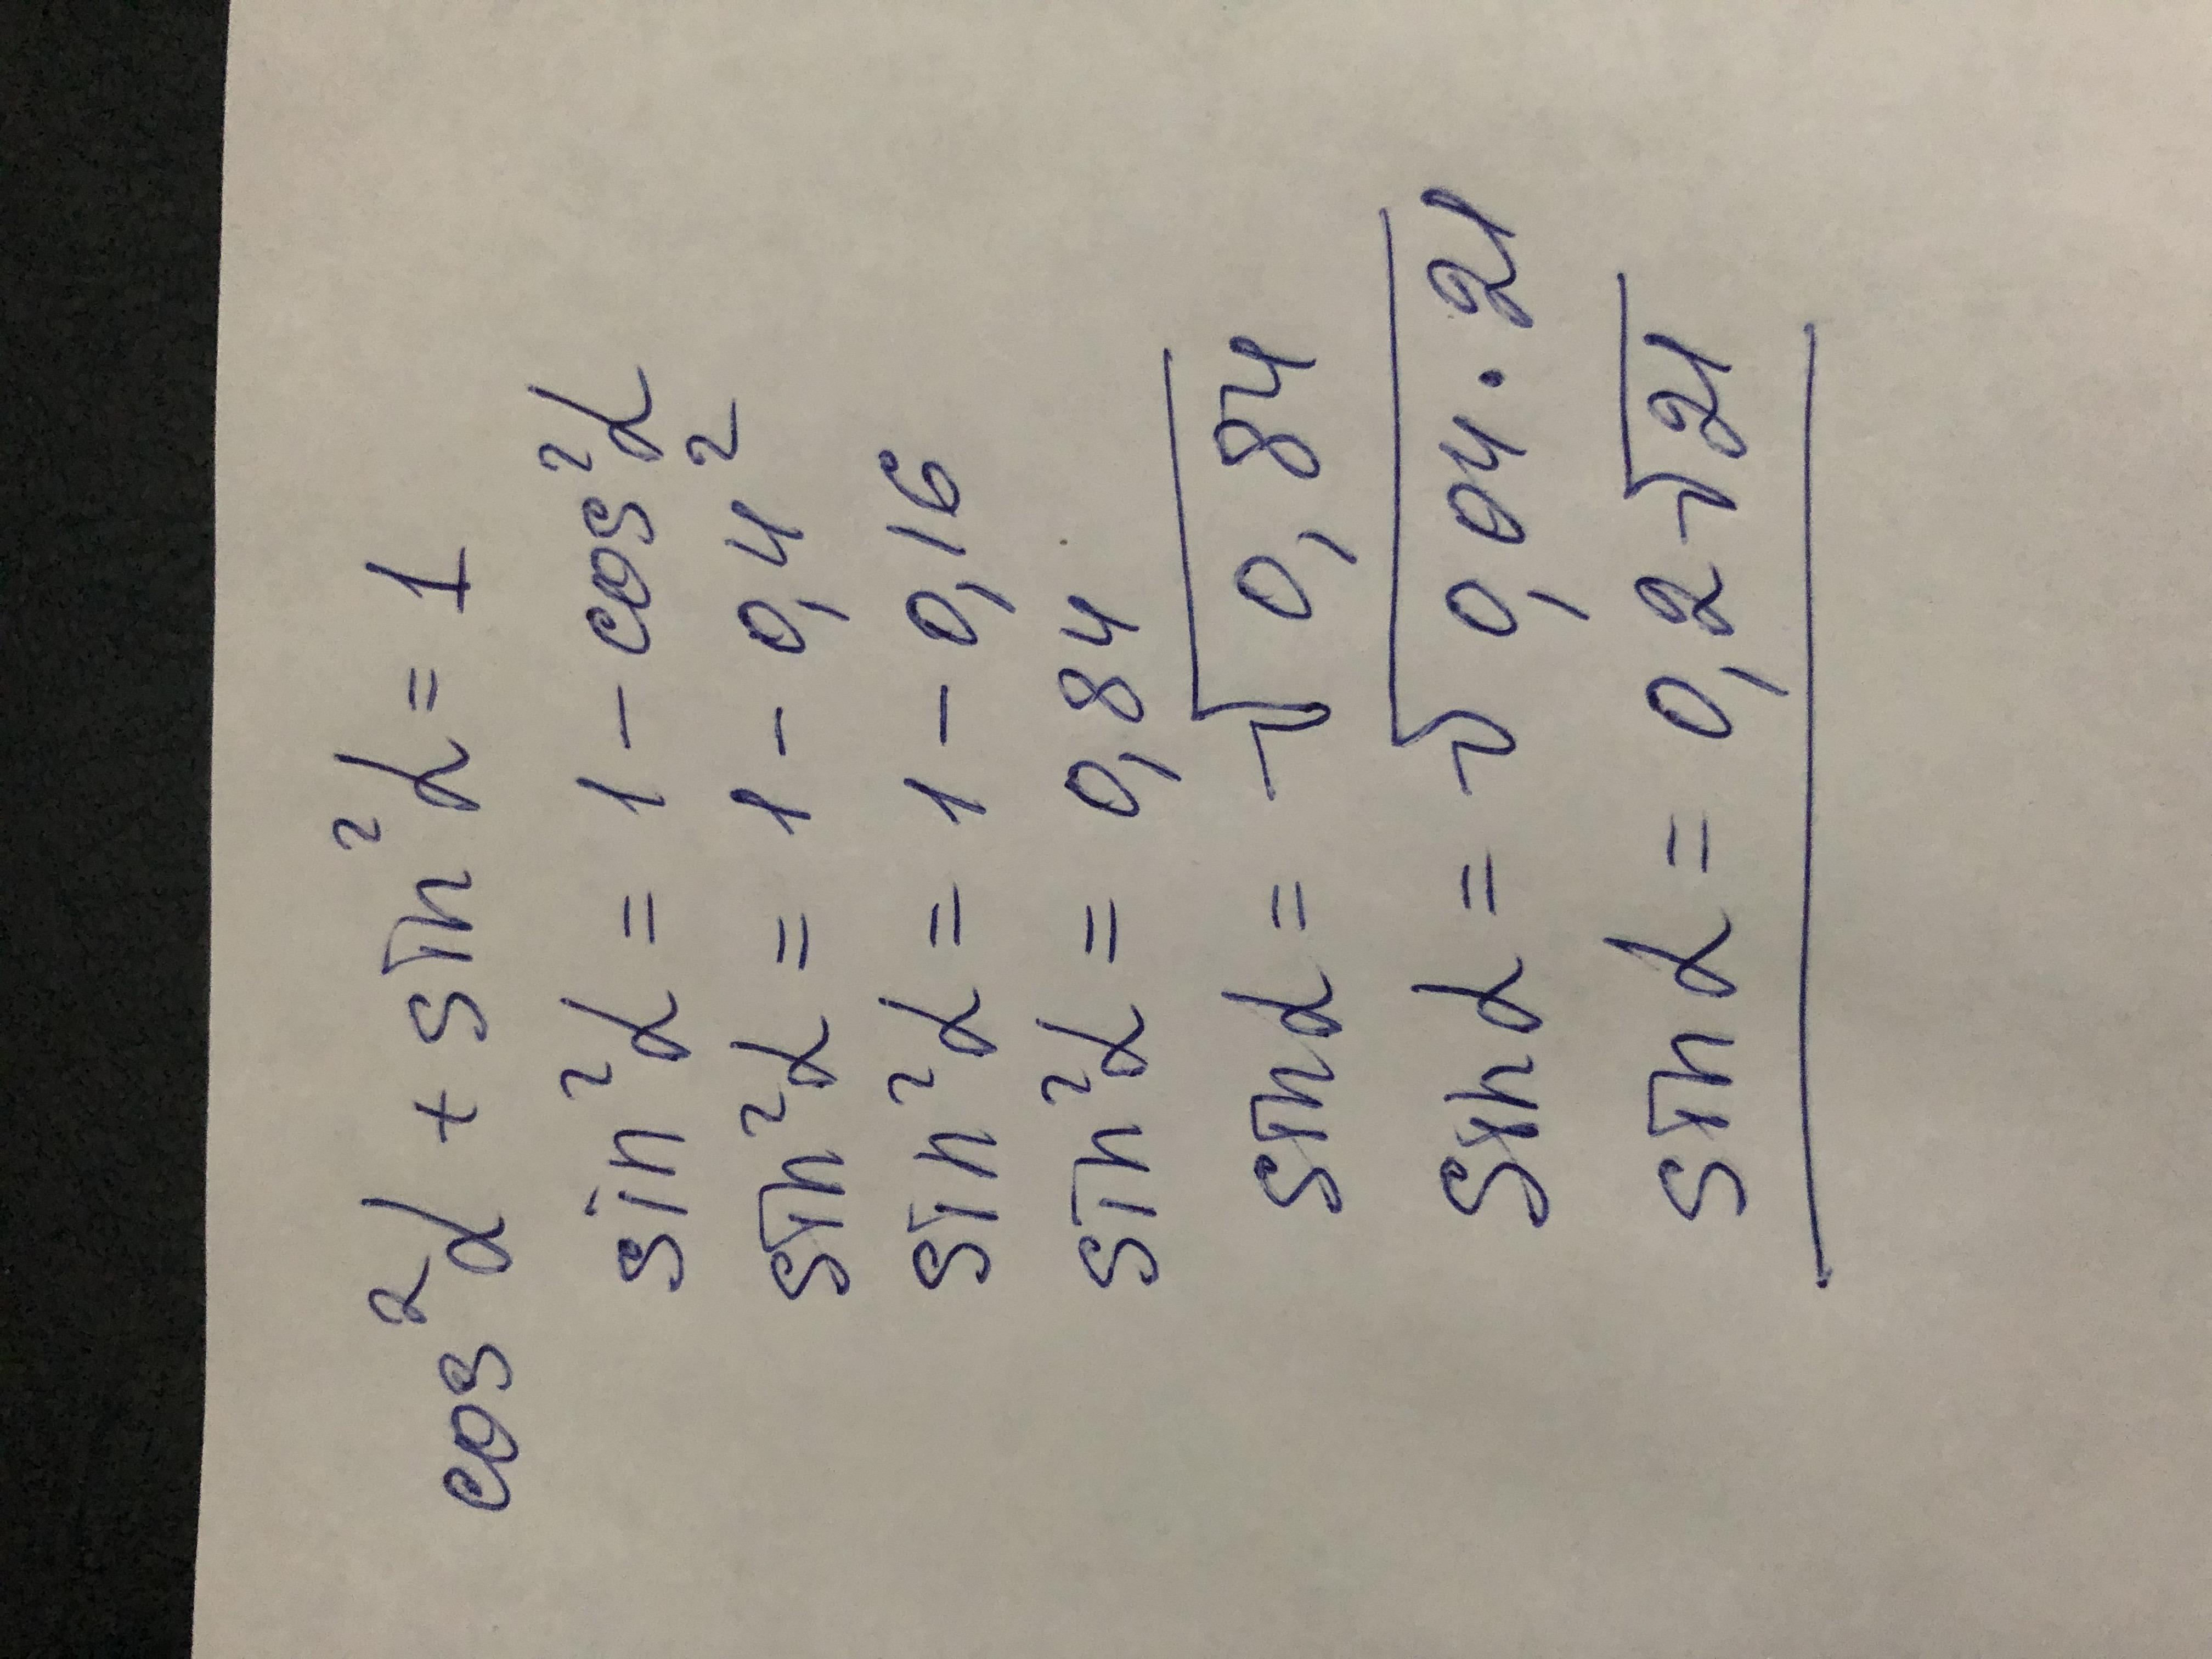 cos²α + sin²α = 1
sin²α = 1 - cos²α
sin²α = 1 - 0,4²
sin²α = 1 - 0,16
sin²α = 0,84
sinα = √0,84
sinα = √0,04·21
sinα = 0,2√21